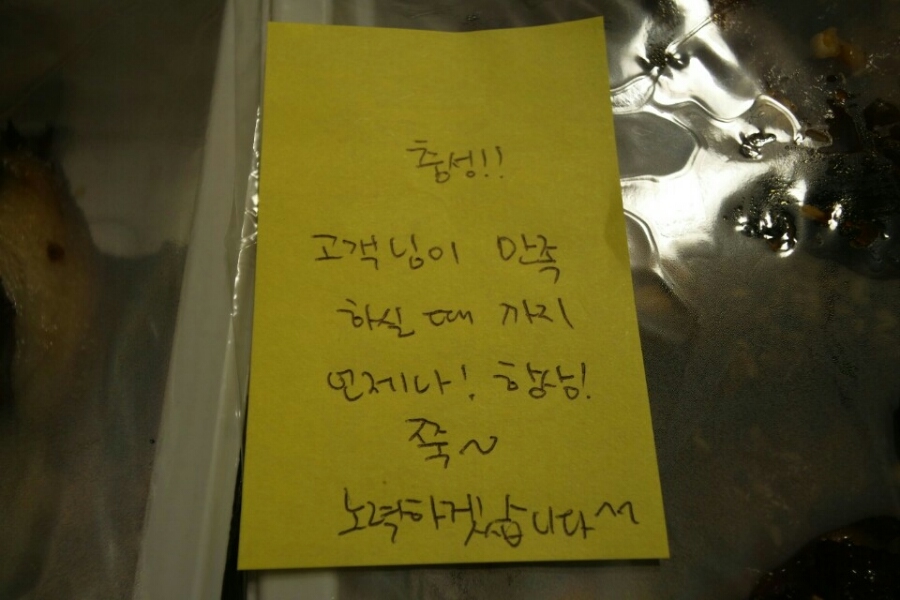 충성!!
고객님이 만족
하실 때 까지
언제나! 항상!
쭉~
노력하겟삽니다~